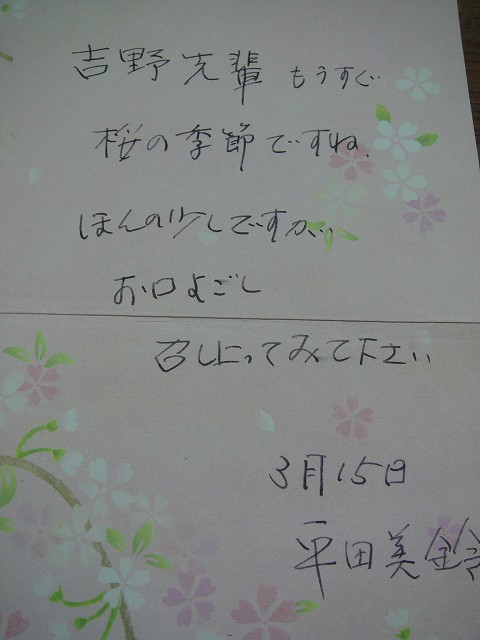 吉野先輩 もうすぐ
桜の季節ですね.
ほんの少しですが、
お口よごし
召し上って みて下さい
3月15日
平田美鈴